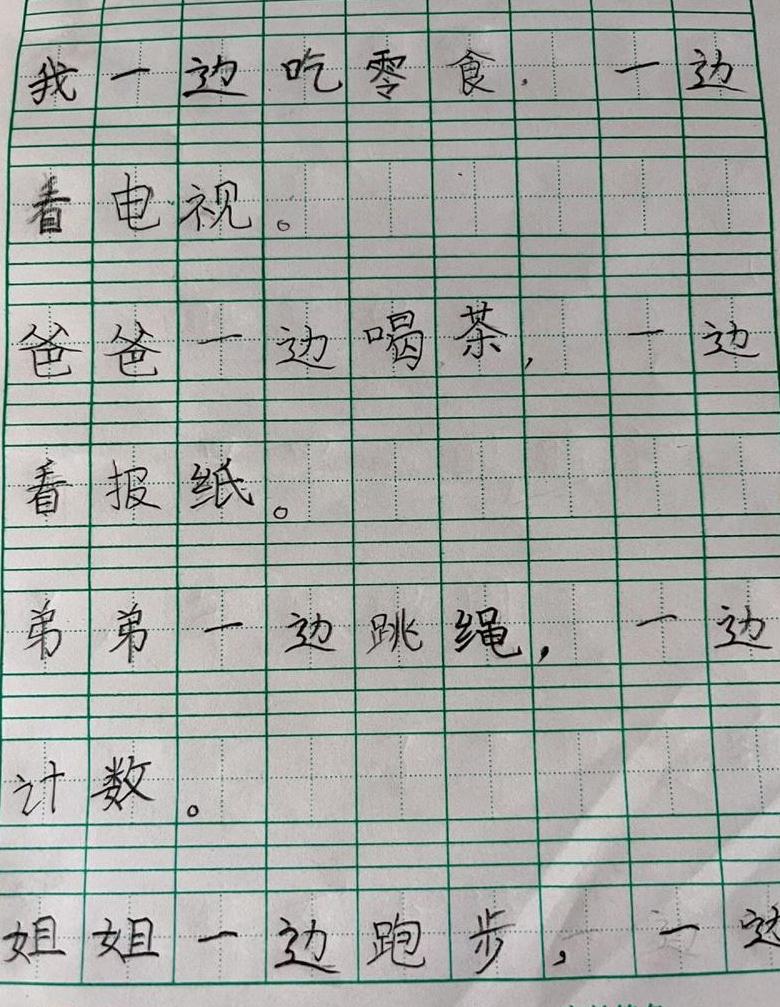 我一边吃零食，一边
看电视。
爸爸一边喝茶，一边
看报纸。
弟弟一边跳绳，一边
计数。
姐姐一边跑步，一边